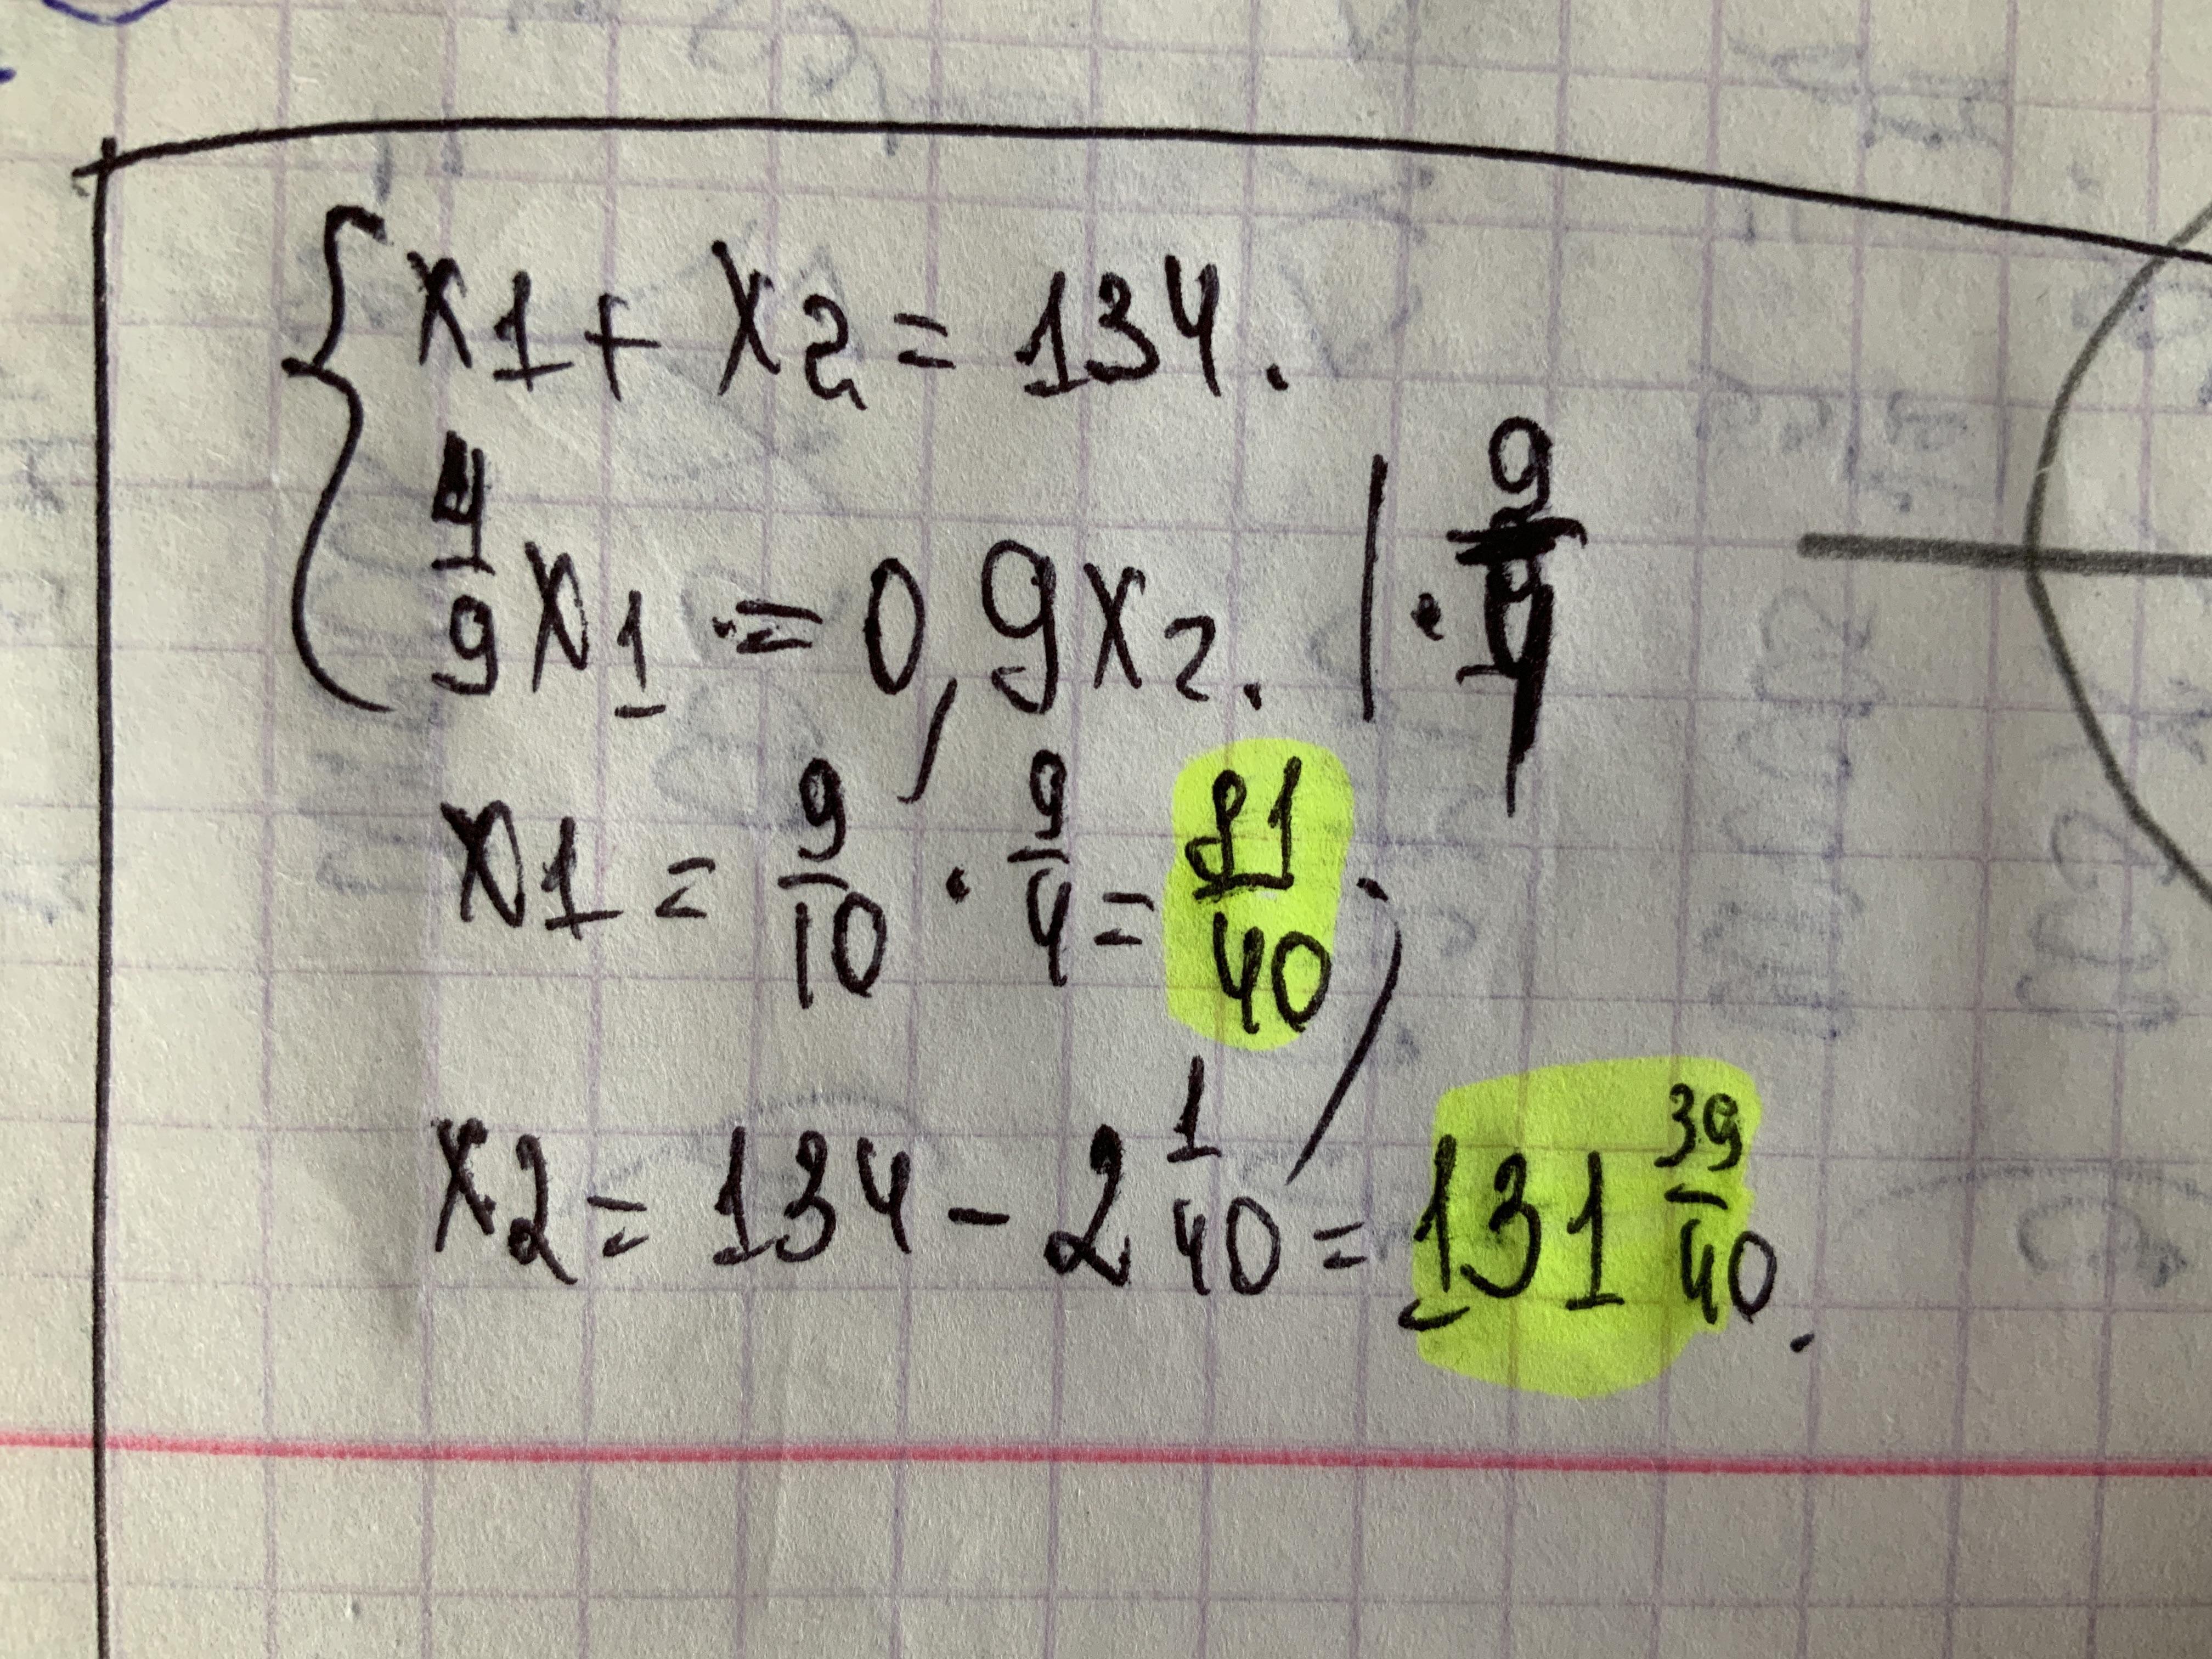 { x1 + x2 = 134.
4/9 x1 = 0,9x2. | · 9/4
x1 = 9/10 · 9/4 = 81/40 .
x2 = 134 - 2 1/40 = 131 39/40.